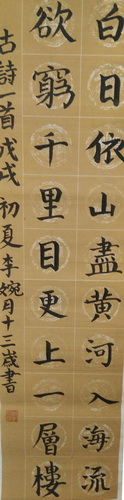 白日依山盡黃河入海流
欲窮千里目更上一層樓
古詩一首戊戌初夏李婉月十三歲書